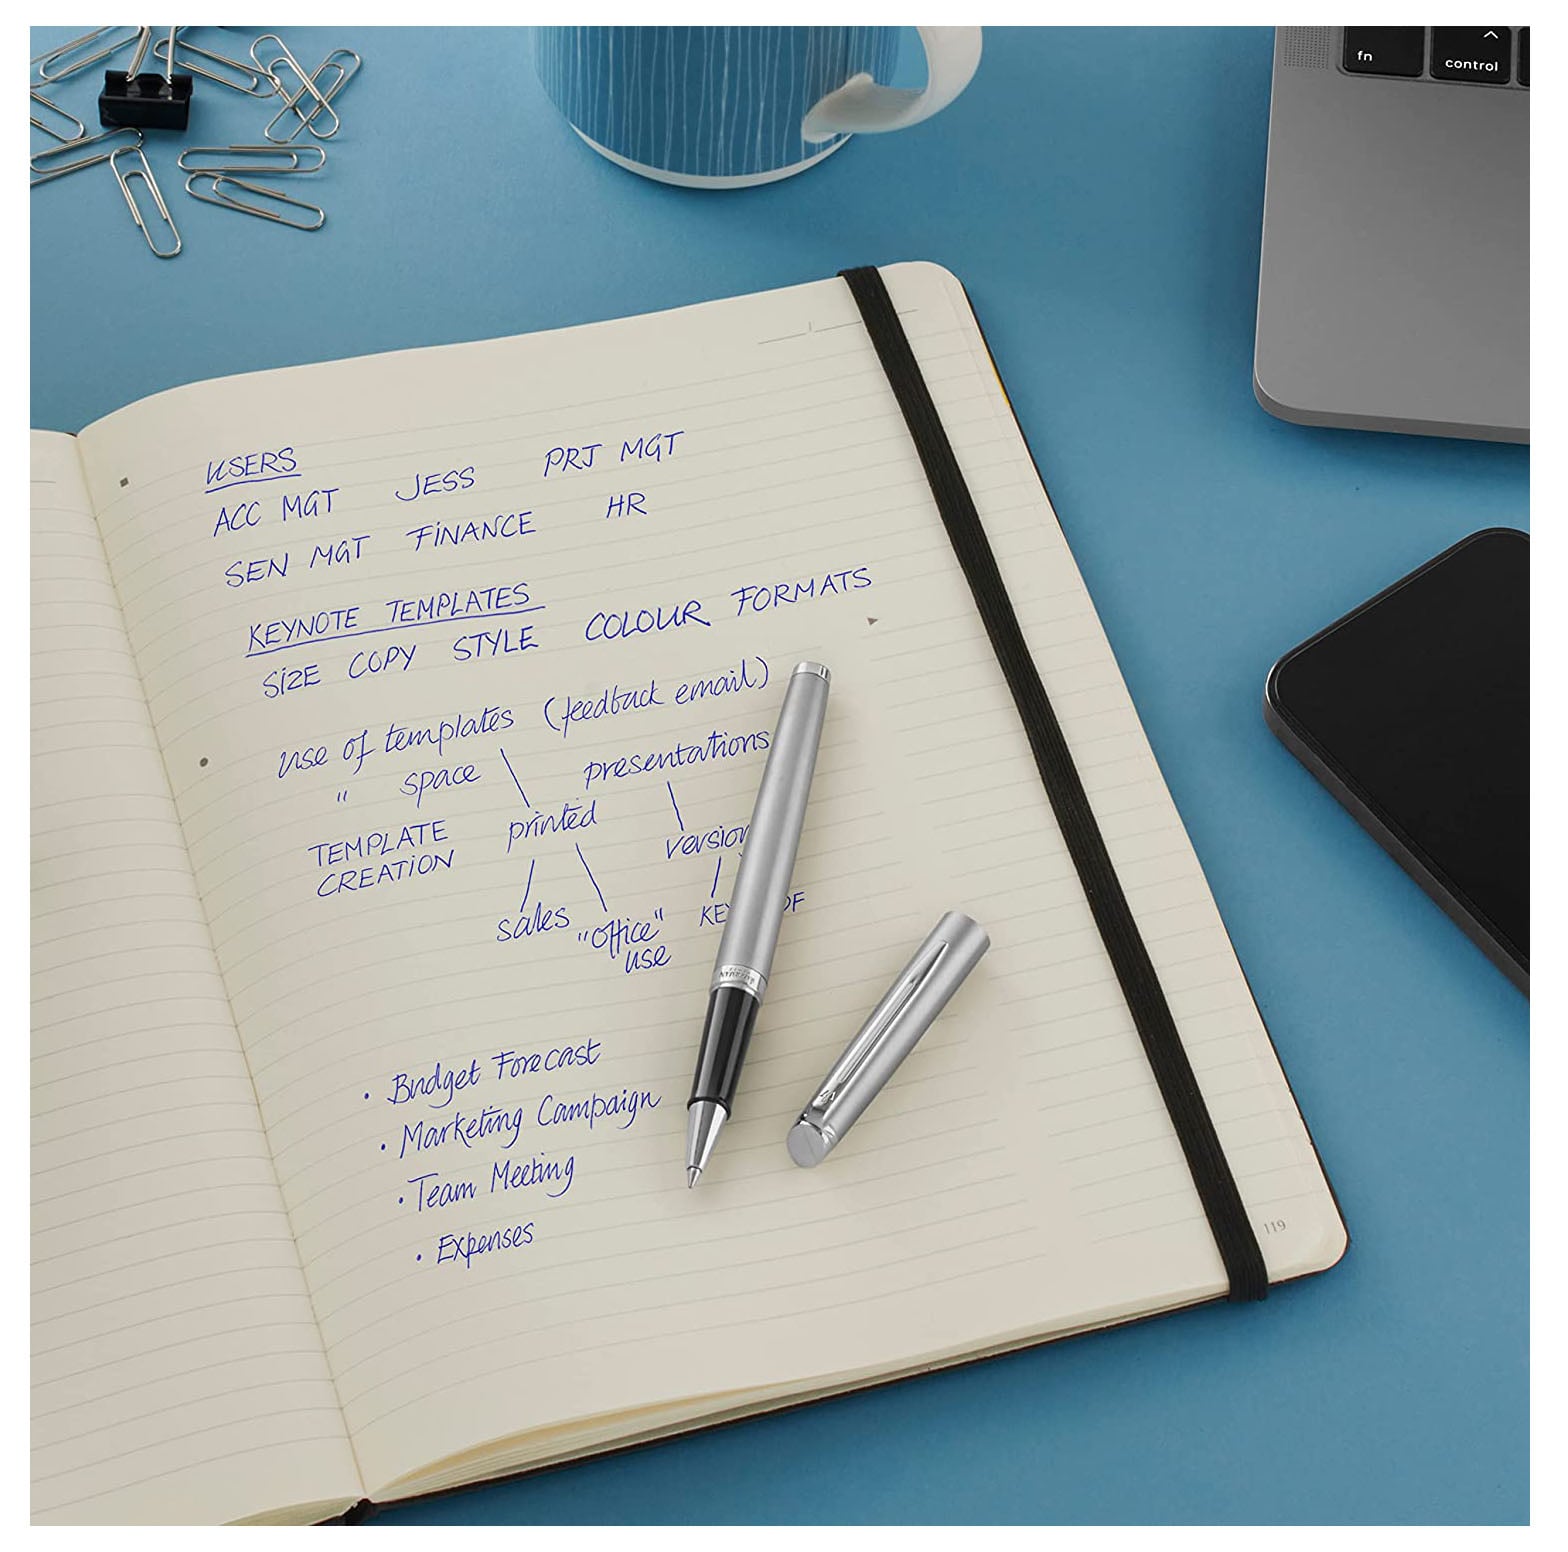 fn
control
USERS
ACC MGT JESS PRJ MGT
SEN MGT FINANCE HR
KEYNOTE TEMPLATES
SIZE COPY STYLE COLOUR FORMATS
use of templates (feedback email)
" space presentations
TEMPLATE printed version
CREATION
sales "office" KE DF
use
WATERMAN
• Budget Forecast
• Marketing Campaign
• Team Meeting
• Expenses
119